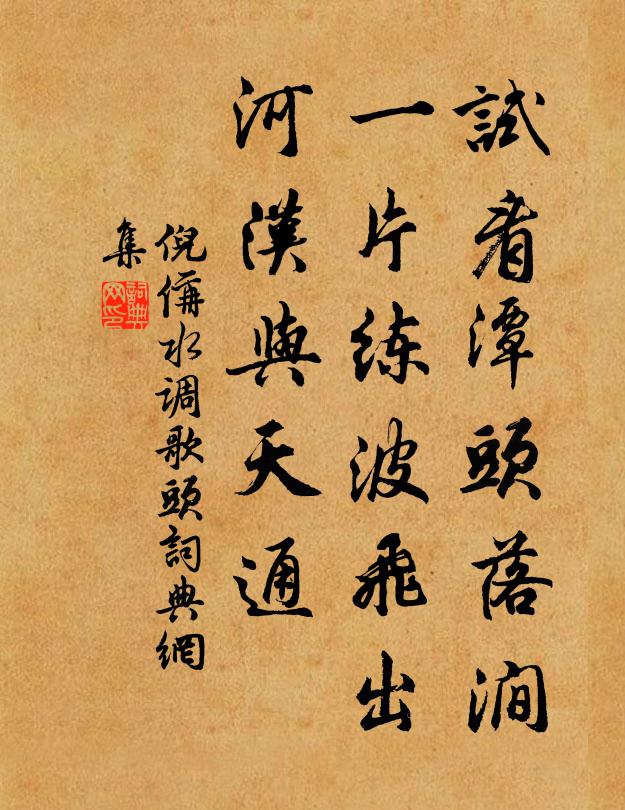 試看潭頭落澗
一片練波飛出
河漢與天通
倪偁水調歌頭詞典網
集
詞典網印